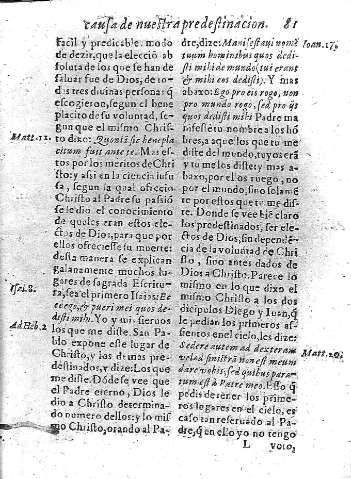 causa de nuestra predestinacion. 81
facil y predicable modo
de dezir, que la elecciõ ab
soluta de los que se han de
saluar fue de Dios, de to-
das tres diuinas personas q̃
escogieron, segun el bene
placito de su voluntad, se-
gun que el mismo Chris-
to dize: Quoniã sic benepla
citum fuit ante te. Mas es-
to es por los meritos de Chri
sto; y assi en la ciencia infu
sa, segun la qual ofrecio
Christo al Padre su passiõ
se le dio el conocimiento
de quales eran estos elec-
tos de Dios, para que por
ellos ofreciesse su muerte:
desta manera se explican
galanamente muchos lu-
gares de sagrada Escritu-
ra, sea el primero Isaias: Ec
ce ego, & pueri mei quos de-
disti mihi. Yo y mis sieruos
los que me diste. San Pa-
blo expone este lugar de
Christo, y los demas pre-
destinados, y dize: Los que
me diste. Dõde se vee que
el Padre eterno, Dios le
dio a Christo determina-
do numero dellos; y lo mis
mo Christo, orando al Pa-
Matt. 11.
Isai. 8.
Ad Heb. 2
dre, dize: Manifestaui nomẽ
tuum hominibus quos dedi-
sti mihi de mundo, tui erant
& mihi eos dedisti. Y mas
abaxo: Ego pro eis rogo, non
pro mundo rogo, sed pro ijs
quos dedisti mihi Padre ma
nifestè tu nombre a los hõ
bres, a aquellos que tu me
diste del mundo, tuyos erã
y tu me los diste: y mas a-
baxo, por el os ruego, no
por el mundo, sino solamẽ
te por estos que tu me dis-
te. Donde se vee biẽ claro
los predestinados, ser elec-
tos de Dios, sin dependẽ-
cia de la voluntad de Chri
sto, sino antes dados de
Dios a Christo. Parece lo
mismo en lo que dixo el
mismo Christo a los dos
dicipulos Diego y Iuan, q̃
le pedian los primeros as-
sientos en el cielo, les dize:
Sedere autem ad dexteram
vel ad sinistrã non est meum
dare vobis, sed quibus para-
tum est à Patre meo. Esso q̃
pedis de tener los prime-
ros lugares en el cielo, es
caso tan reseruado al Pa-
dre, q̃ en ello yo no tengo
L voto,
Ioan. 17,
Matt. 20.